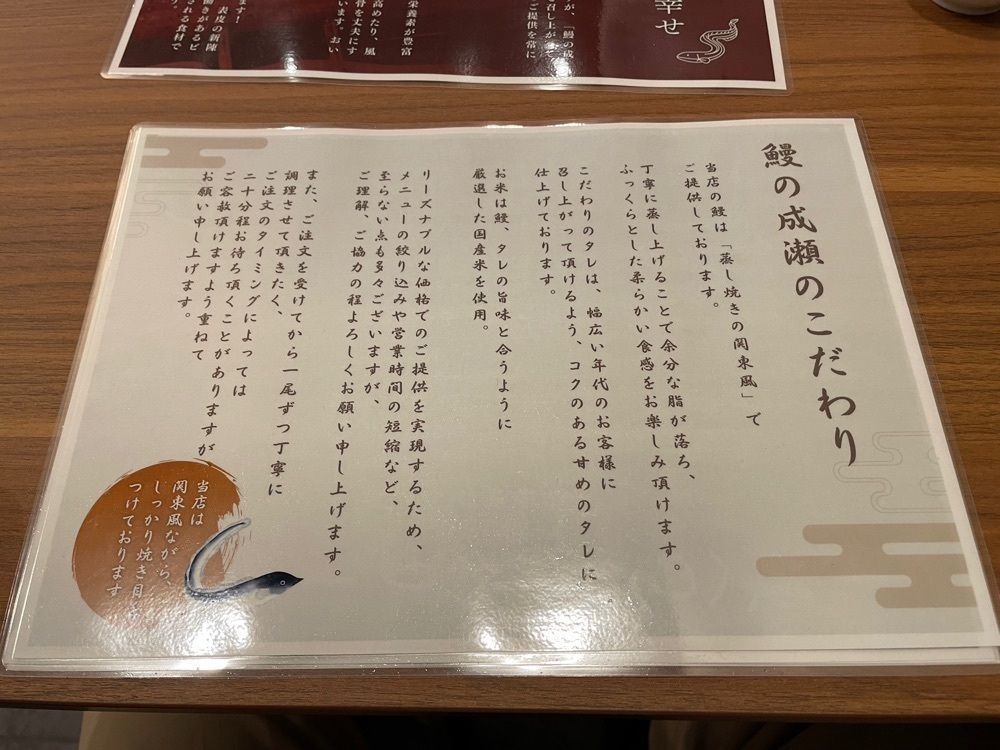 幸せ
鰻の成瀬のこだわり
当店の鰻は「蒸し焼きの関東風」で
ご提供しております。
丁寧に蒸し上げることで余分な脂が落ち、
ふっくらとした柔らかい食感をお楽しみ頂けます。
こだわりのタレは、幅広い年代のお客様に
召し上がって頂けるよう、コクのある甘めのタレに
仕上げております。
お米は鰻、タレの旨味と合うように
厳選した国産米を使用。
リーズナブルな価格でのご提供を実現するため、
メニューの絞り込みや営業時間の短縮など、
至らない点も多々ございますが、
ご理解、ご協力の程よろしくお願い申し上げます。
また、ご注文を受けてから一尾ずつ丁寧に
調理させて頂きたく、
ご注文のタイミングによっては
二十分程お待ち頂くことがありますが
ご容赦頂けますよう重ねて
お願い申し上げます。
当店は
関東風ながら、
しっかり焼き目を
つけております